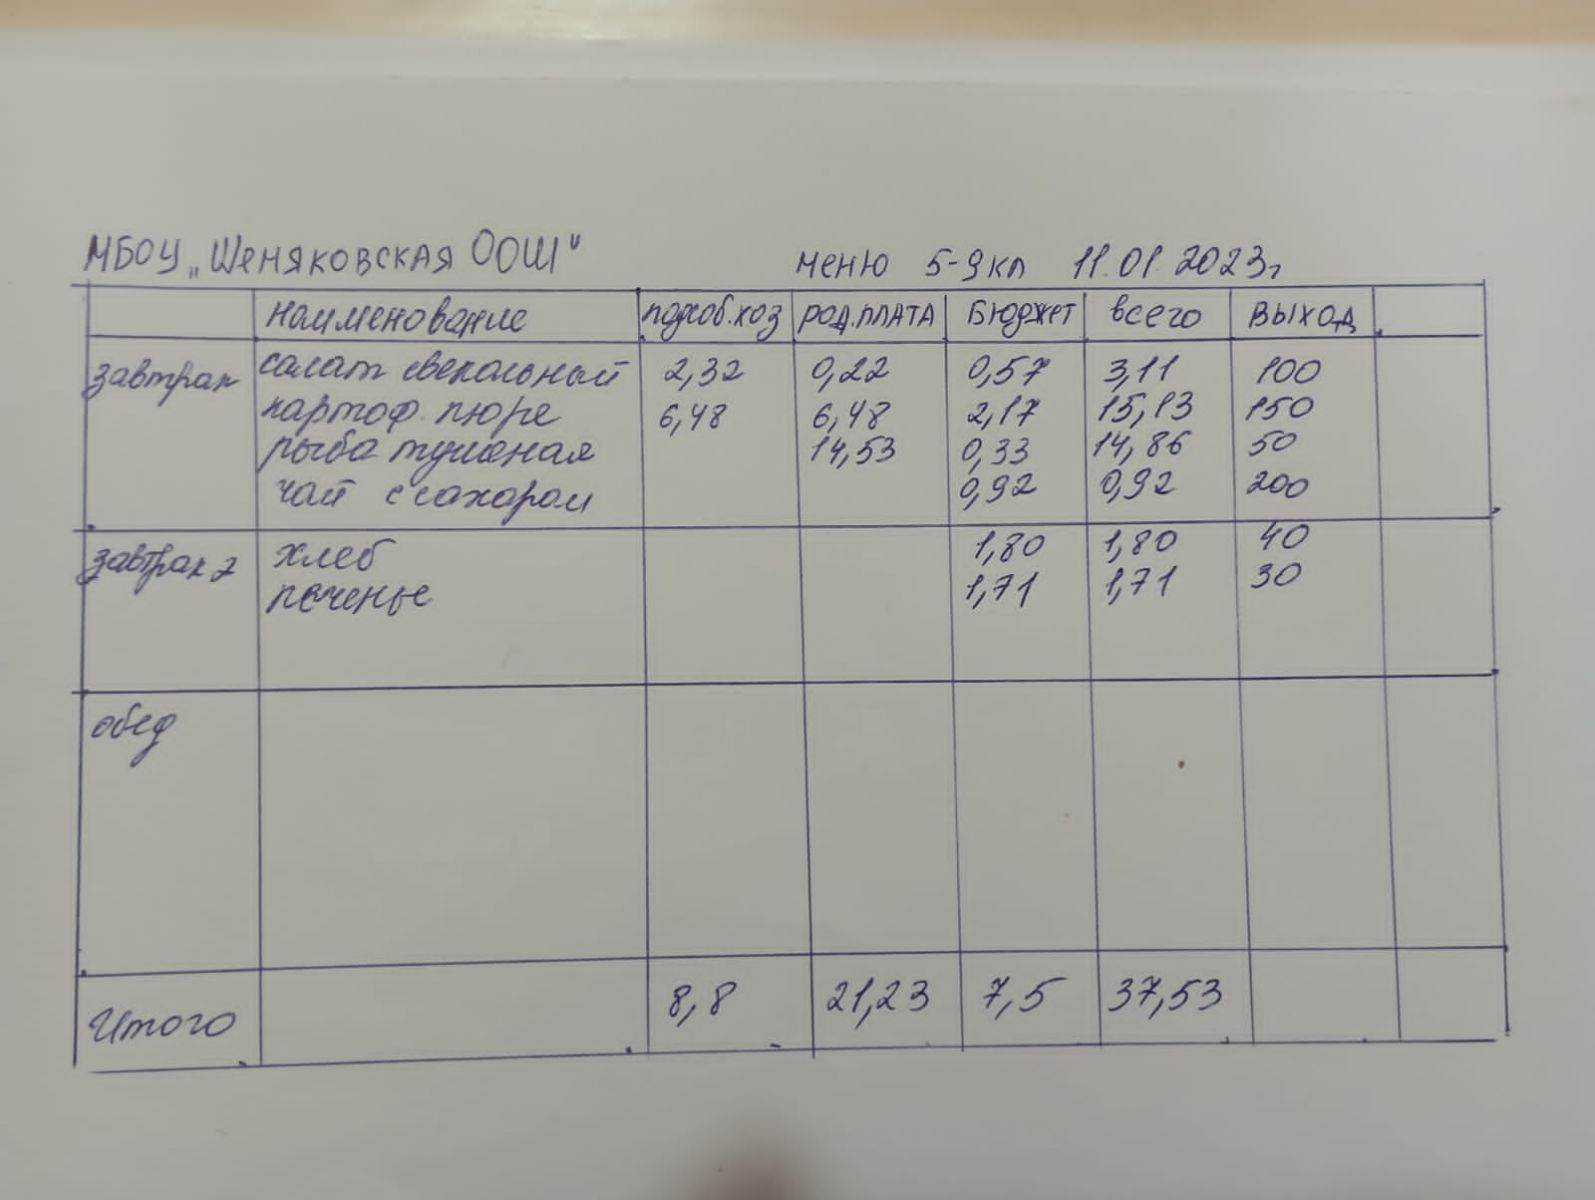 МБОУ „Шеняковская ООШ"
меню 5-9кл 11.01.2023г
наименование подсоб.хоз род.плата Бюджет всего выход
завтрак салат свекольный 2,32 0,22 0,57 3,11 100
картоф. пюре 6,48 6,48 2,17 15,13 150
рыба тушеная 14,53 0,33 14,86 50
чай с сахаром 0,92 0,92 200
завтрак 2 хлеб 1,80 1,80 40
печенье 1,71 1,71 30
обед
Итого 8,8 21,23 7,5 37,53